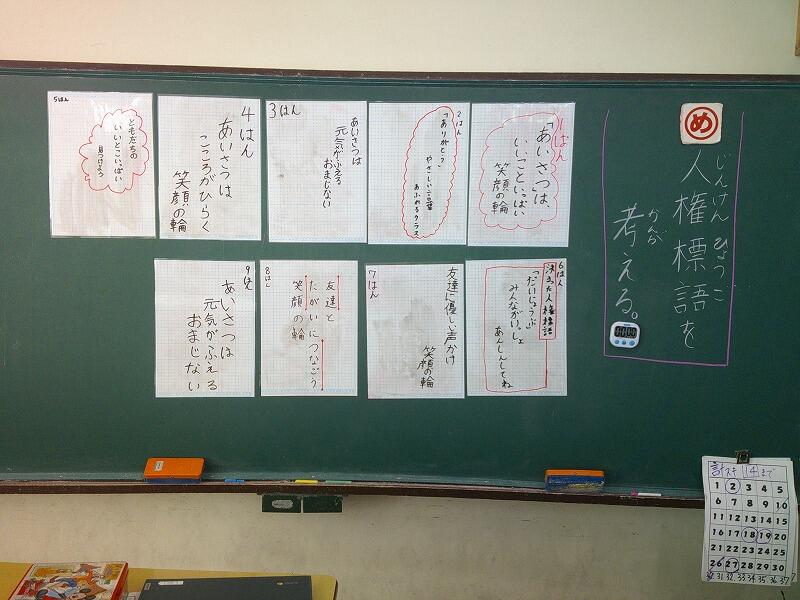 め
じんけんひょうご
人権標語を
かんが
考える。
00:00
1はん
「あいさつは、
いいこといっぱい
笑顔の輪
2はん
「ありがとう」
やさしい言葉
あふれるクラス
3はん
あいさつは
元気がふえる
おまじない
4はん
あいさつは
こころがひらく
笑顔の輪
5はん
ともだちの
いいとこいっぱい
見つけよう
6はん
決まった人権標語
「だいじょうぶ」
みんながいっしょ
あんしんしてね
7はん
友達に優しい声かけ
笑顔の輪
8はん
友達と
たがいにつなごう
笑顔の輪
9はん
あいさつは
元気がふえる
おまじない
14まで
1 2 3 4 5
6 7 8 9 10
11 12 13 14 15
16 17 18 19 20
21 22 23 24 25
26 27 28 29 30
31 32 33 34 35 36 37